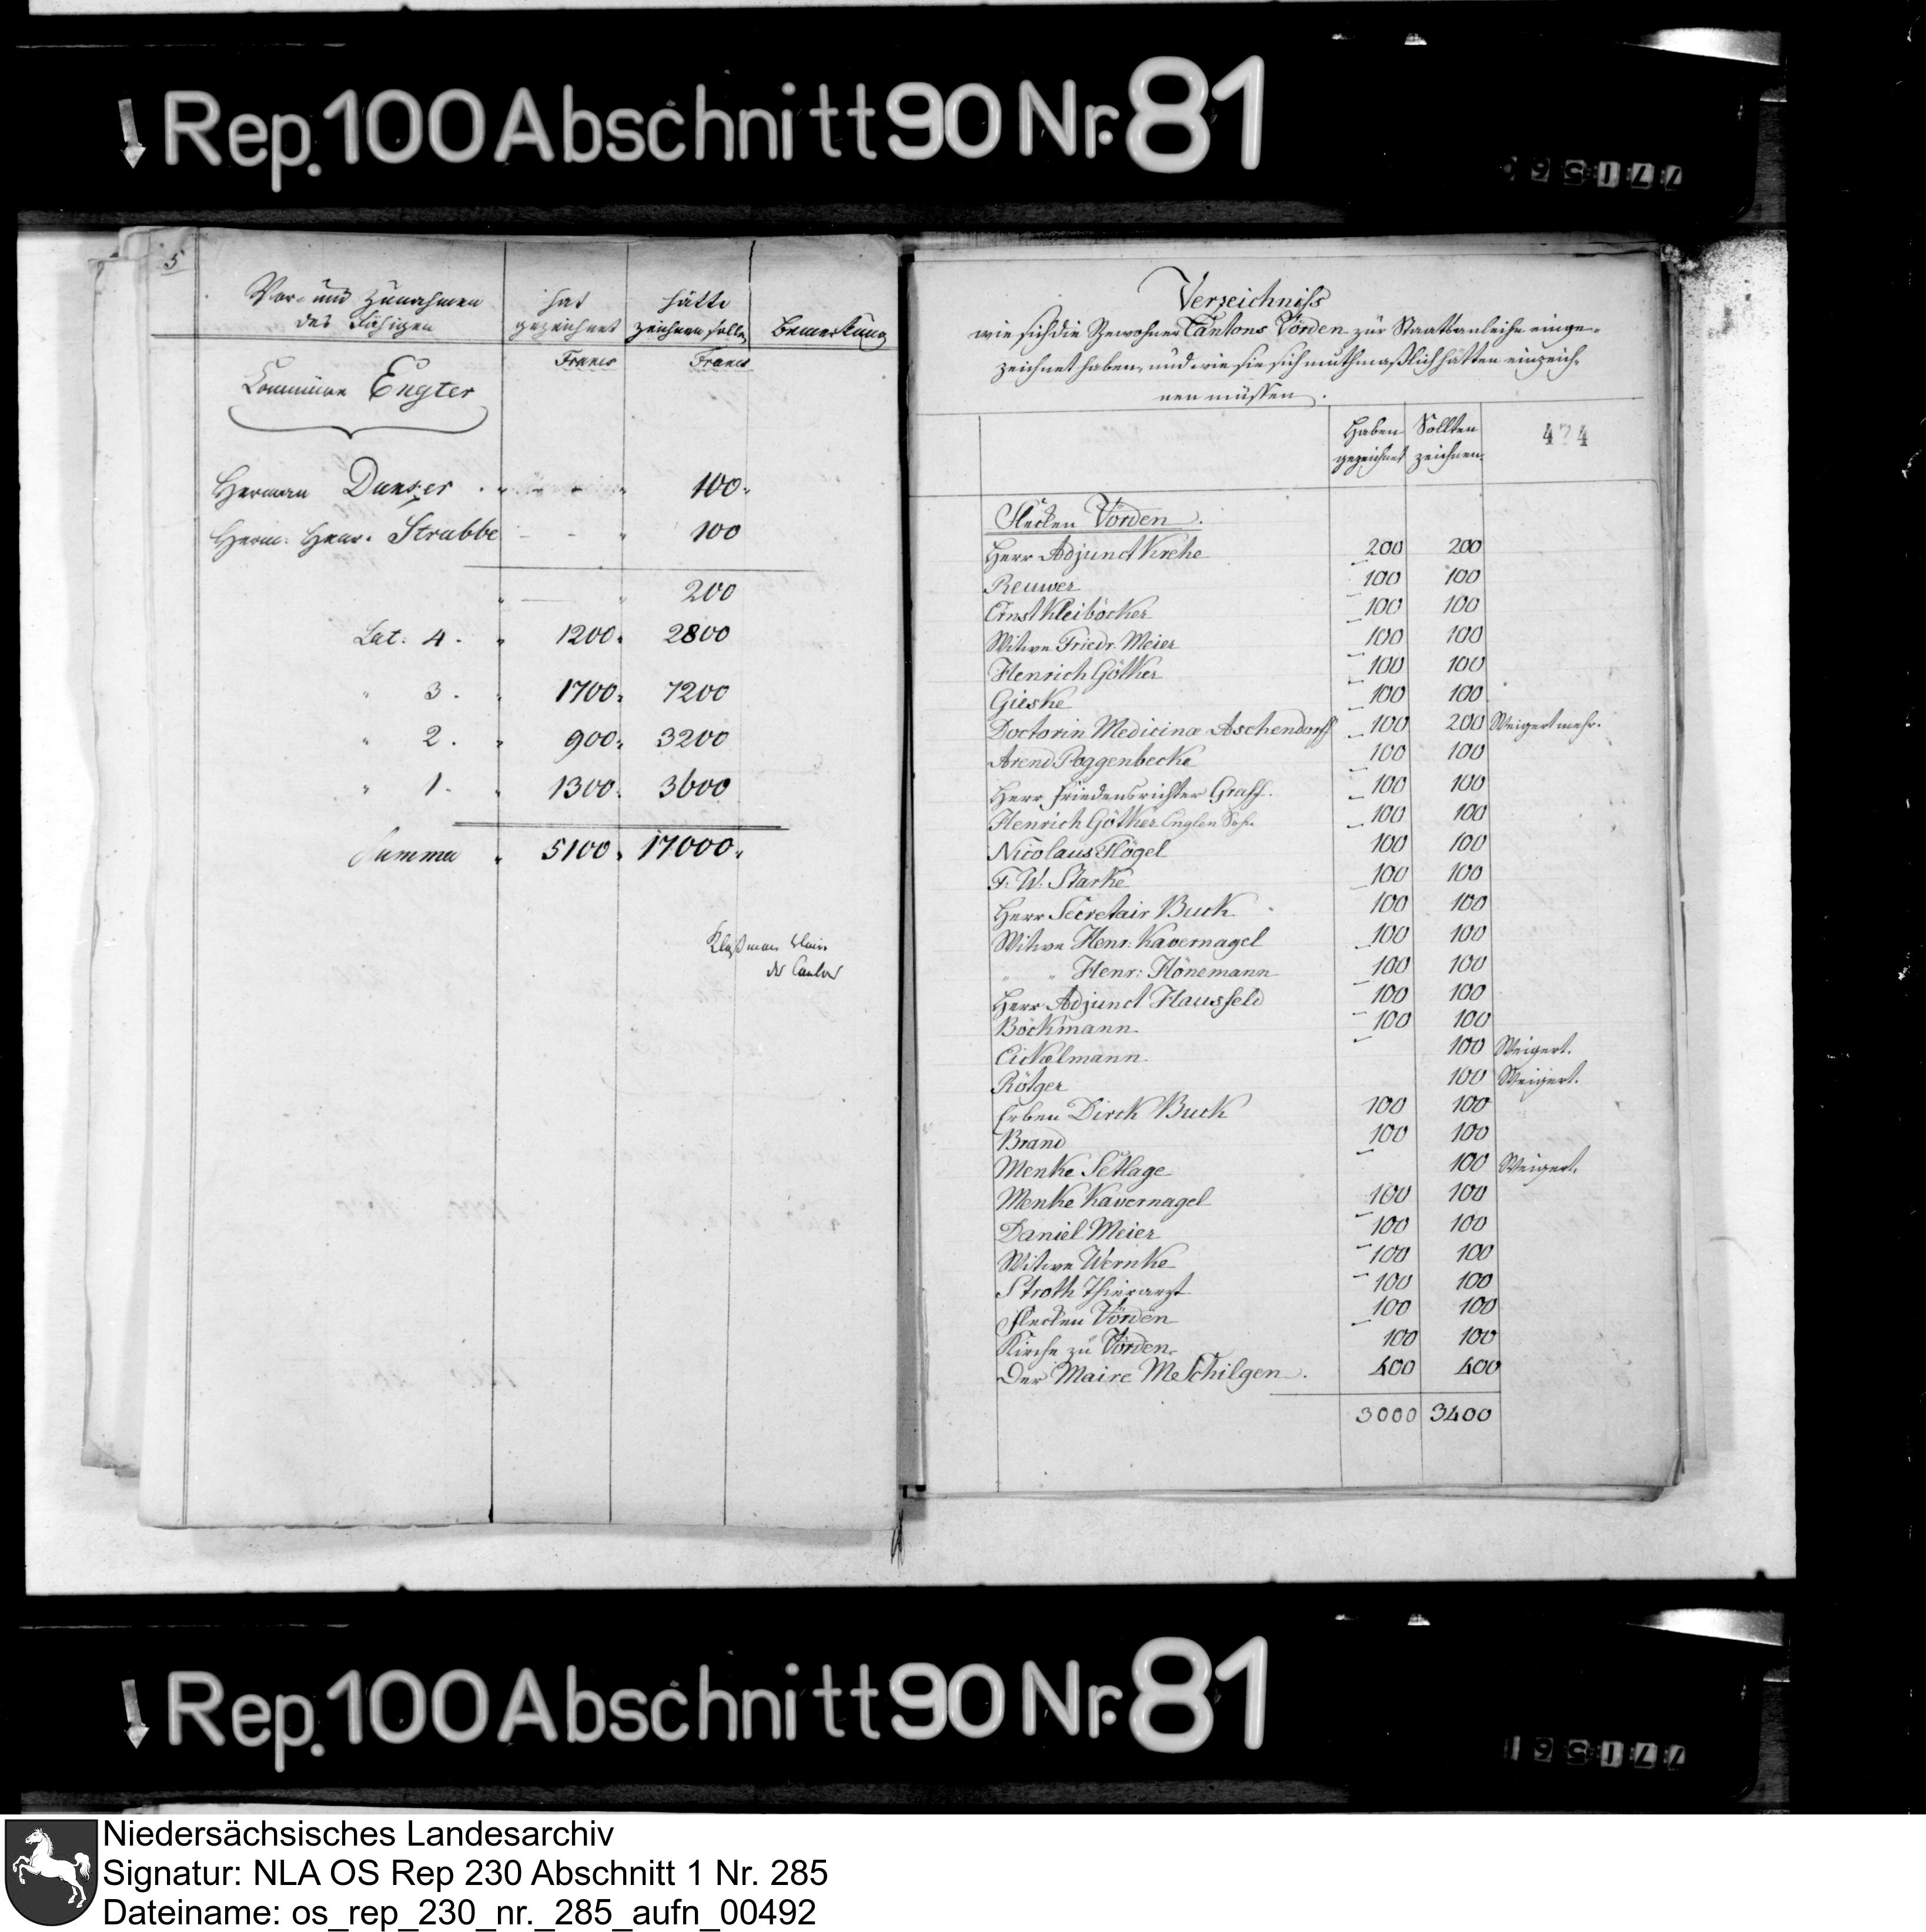 Rep. 100 Abschnitt 90 Nr. 81
5
Vor- und Zunahmen
des Fähigen
hat
gezeichnet
hätte
zeichnen sollen
Bemerkung
Francs
Francs
Commüne Engter
Herman Dunker 100
Herm: Henr. Strubbe 100
200
Lat. 4. 1200. 2800
" 3. 1700. 7200
" 2. 900. 3200
" 1. 1300. 3600
Summa 5100. 17000.
Verzeichniss
wie sich die Bewohner Cantons Vörden zür Staatsanleihe einge-
zeichnet haben, und wie sie sich muthmaßlich hätten einzeich-
nen müssen.
Haben
gezeichnet
Sollten
zeichnen
474
Flecken Vörden.
Herr Adjunct Krehe 200 200
Reuwer 100 100
Ernst Kleiböcker 100 100
Witwe Friedr. Meier 100 100
Henrich Götker 100 100
Gieske 100 100
Doctorin Medicinæ Aschendorff 100 200 Weigert mehr.
Arend Poggenbecke 100 100
Herr Friedensrichter Graff. 100 100
Henrich Götker 100 100
Nicolaus Högel 100 100
F. W. Starke 100 100
Herr Secretair Buck 100 100
Witwe Henr: Kavernagel 100 100
" " Henr: Hönemann 100 100
Herr Adjunct Hausfeld 100 100
Böckmann 100 100
Eickelmann 100 Weigert.
Rötger 100 Weigert.
Erben Dirck Buck 100 100
Brand 100 100
Menke Setlage 100 Weigert.
Menke Kavernagel 100 100
Daniel Meier 100 100
Witwe Wernke 100 100
Stroth Thierarzt 100 100
Flecken Vörden 100 100
Kirche zü Vörden 100 100
Der Maire MeSchilgen. 400 400
3000 3400
Rep. 100 Abschnitt 90 Nr. 81
Niedersächsisches Landesarchiv
Signatur: NLA OS Rep 230 Abschnitt 1 Nr. 285
Dateiname: os_rep_230_nr._285_aufn_00492